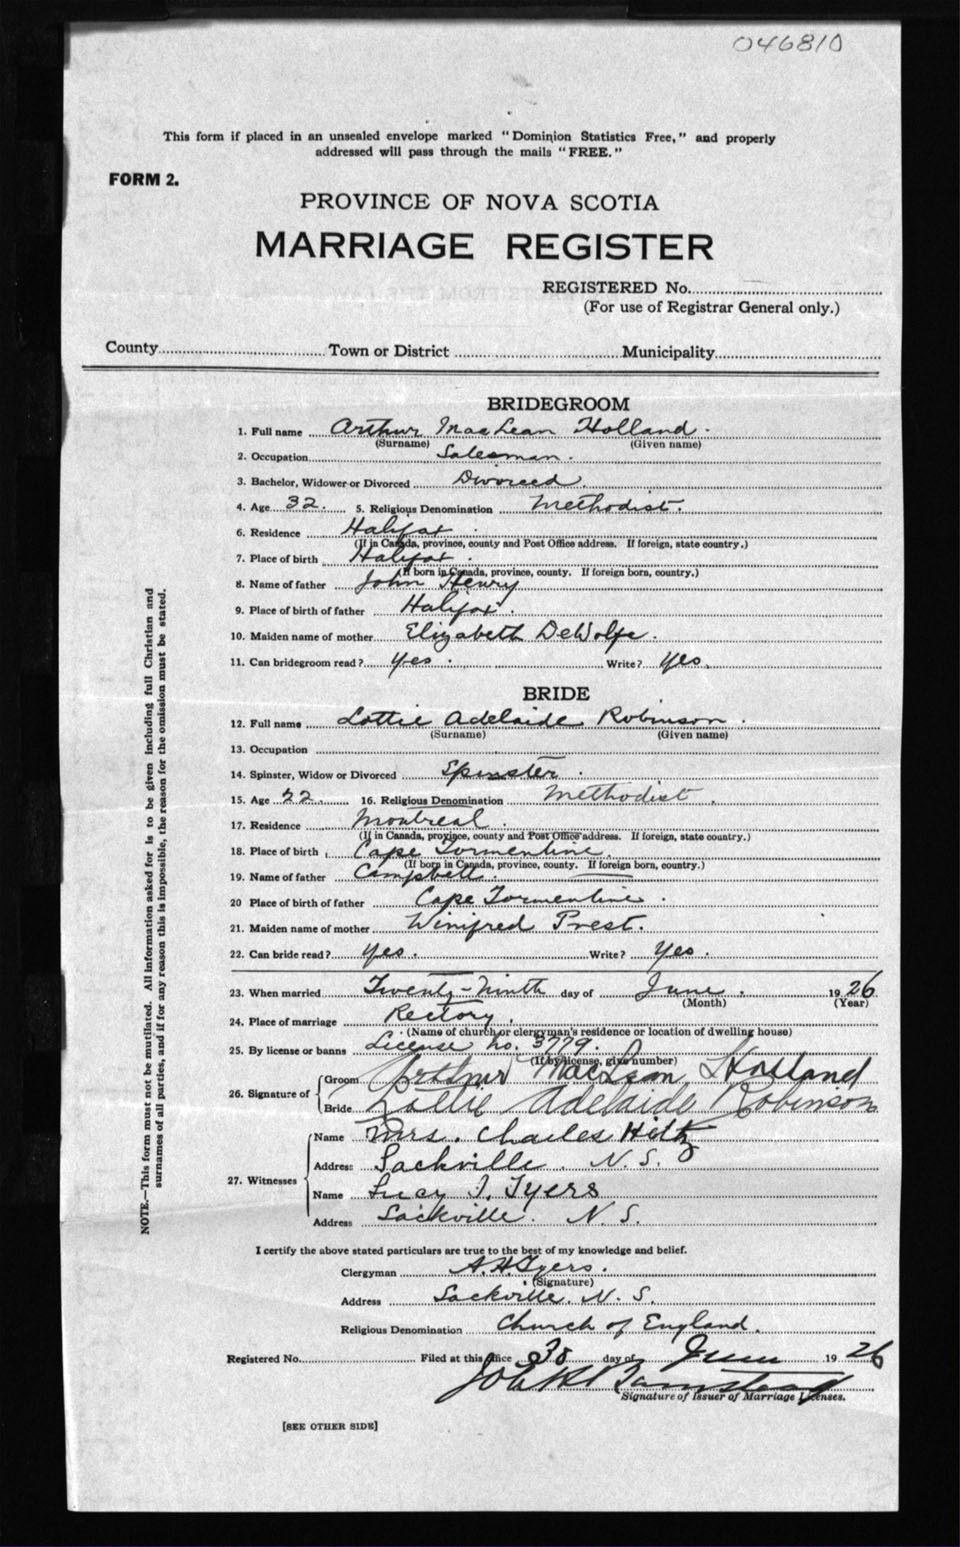 046810
This form if placed in an unsealed envelope marked "Dominion Statistics Free," and properly
addressed will pass through the mails "FREE."
FORM 2.
PROVINCE OF NOVA SCOTIA
MARRIAGE REGISTER
REGISTERED No.
(For use of Registrar General only.)
County Town or District Municipality
BRIDEGROOM
1. Full name Arthur MacLean Holland.
(Surname) (Given name)
2. Occupation Salesman.
3. Bachelor, Widower or Divorced Divorced.
4. Age 32. 5. Religious Denomination Methodist.
6. Residence Halifax.
(If in Canada, province, county and Post Office address. If foreign, state country.)
7. Place of birth Halifax.
(If born in Canada, province, county. If foreign born, country.)
8. Name of father John Henry
9. Place of birth of father Halifax.
10. Maiden name of mother Elizabeth DeWolfe.
11. Can bridegroom read? Yes. Write? Yes.
BRIDE
12. Full name Lottie Adelaide Robinson.
(Surname) (Given name)
13. Occupation
14. Spinster, Widow or Divorced Spinster.
15. Age 22. 16. Religious Denomination Methodist.
17. Residence Montreal.
(If in Canada, province, county and Post Office address. If foreign, state country.)
18. Place of birth Cape Tormentine
(If born in Canada, province, county. If foreign born, country.)
19. Name of father Campbell.
20 Place of birth of father Cape Tormentine.
21. Maiden name of mother Winifred Prest.
22. Can bride read? Yes. Write? Yes.
23. When married Twenty-Ninth day of June. 1926
(Month) (Year)
24. Place of marriage Rectory.
(Name of church or clergyman's residence or location of dwelling house)
25. By license or banns License No. 3779.
(If by license, give number)
26. Signature of Groom Arthur MacLean Holland
Bride Lottie Adelaide Robinson
27. Witnesses
Name Mrs. Charles Hiltz
Address Sackville. N. S.
Name Lucy I. Tyers
Address Sackville. N. S.
I certify the above stated particulars are true to the best of my knowledge and belief.
Clergyman A. H. Tyers.
(Signature)
Address Sackville. N. S.
Religious Denomination Church of England.
Registered No. Filed at this office 30 day of June 1926
Signature of Issuer of Marriage Licenses.
[SEE OTHER SIDE]
NOTE.—This form must not be mutilated. All information asked for is to be given including full Christian and
surnames of all parties, and if for any reason this is impossible, the reason for the omission must be stated.